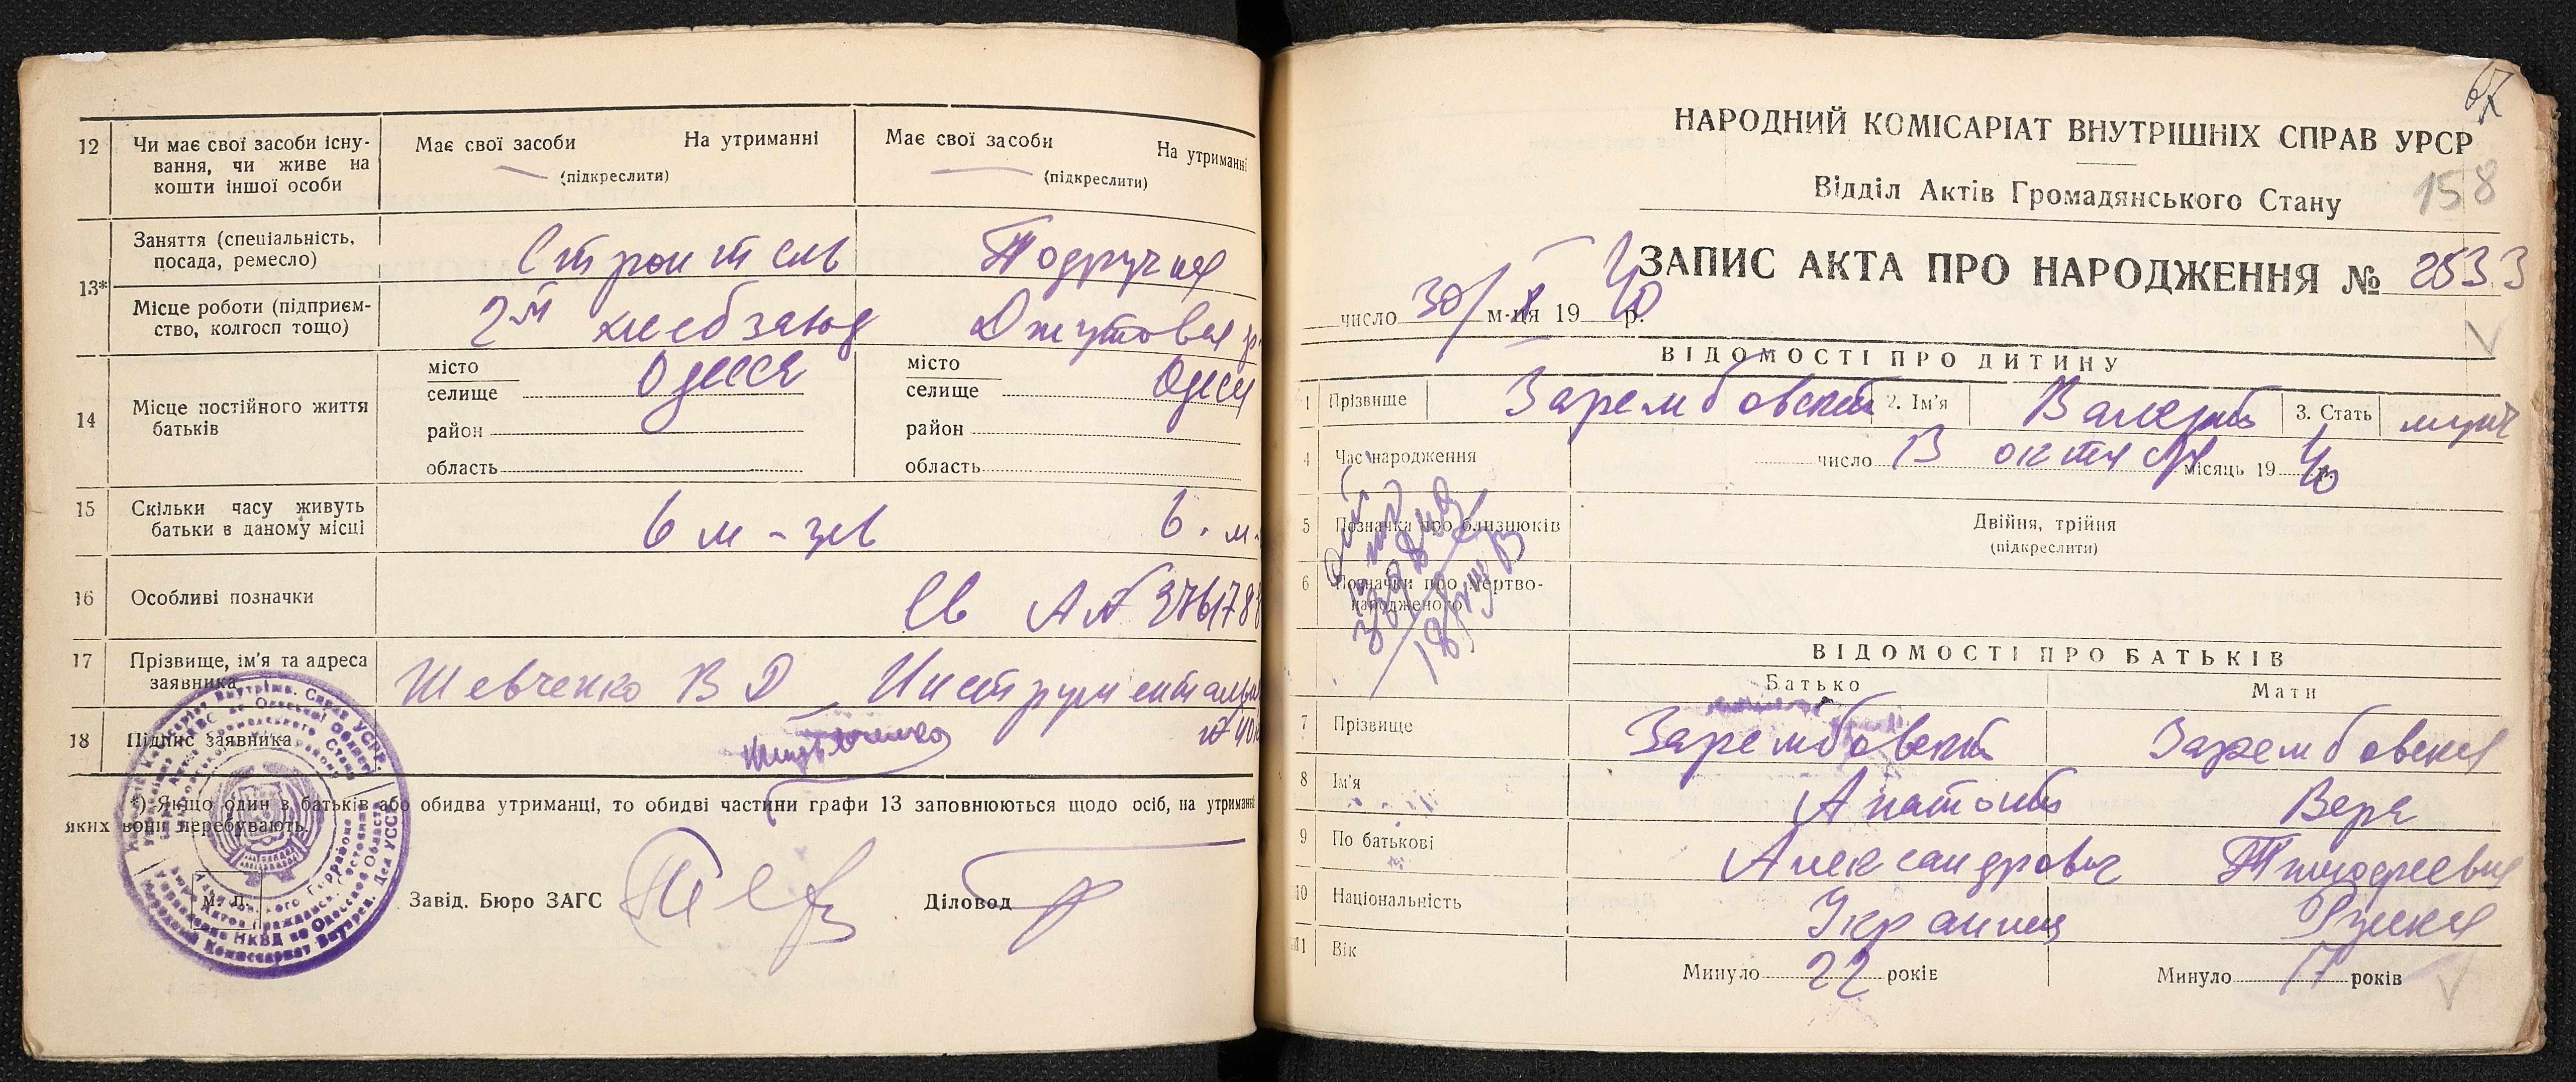 12 Чи має свої засоби існу-
вання, чи живе на
кошти іншої особи
Має свої засоби На утриманні
(підкреслити)
Має свої засоби На утриманні
(підкреслити)
13* Заняття (спеціальність,
посада, ремесло)
Строитель Подручная
Місце роботи (підприєм-
ство, колгосп тощо)
2й хлебзавод Джутовая
14 Місце постійного життя
батьків
місто
селище Одесса
район
область
місто
селище Одесса
район
область
15 Скільки часу живуть
батьки в даному місці
6 м-цев 6. м-
16 Особливі позначки
Св АЛ № 376178
17 Прізвище, ім'я та адреса
заявника
Шевченко В Д Инструментальн
18 Підпис заявника
*) Якщо один з батьків або обидва утриманці, то обидві частини графи 13 заповнюються щодо осіб, на утриманні
яких вони перебувають.
М. П.
Завід. Бюро ЗАГС
Діловод
67
НАРОДНИЙ КОМІСАРІАТ ВНУТРІШНІХ СПРАВ УРСР
Відділ Актів Громадянського Стану
158
ЗАПИС АКТА ПРО НАРОДЖЕННЯ № 2533
число 30/ м-ця X 19 40 р.
ВІДОМОСТІ ПРО ДИТИНУ
1 Прізвище Зарембовский 2. Ім'я Валерий 3. Стать муж
4 Час народження
число 13 октября місяць 19 40 р.
5 Позначка про близнюків
Двійня, трійня
(підкреслити)
6 Позначки про мертво-
народженого
ВІДОМОСТІ ПРО БАТЬКІВ
Батько Мати
7 Прізвище Зарембовский Зарембовская
8 Ім'я Анатолий Вера
9 По батькові Александрович Тимофеевна
10 Національність Украинец Русская
11 Вік
Минуло 22 років Минуло 17 років